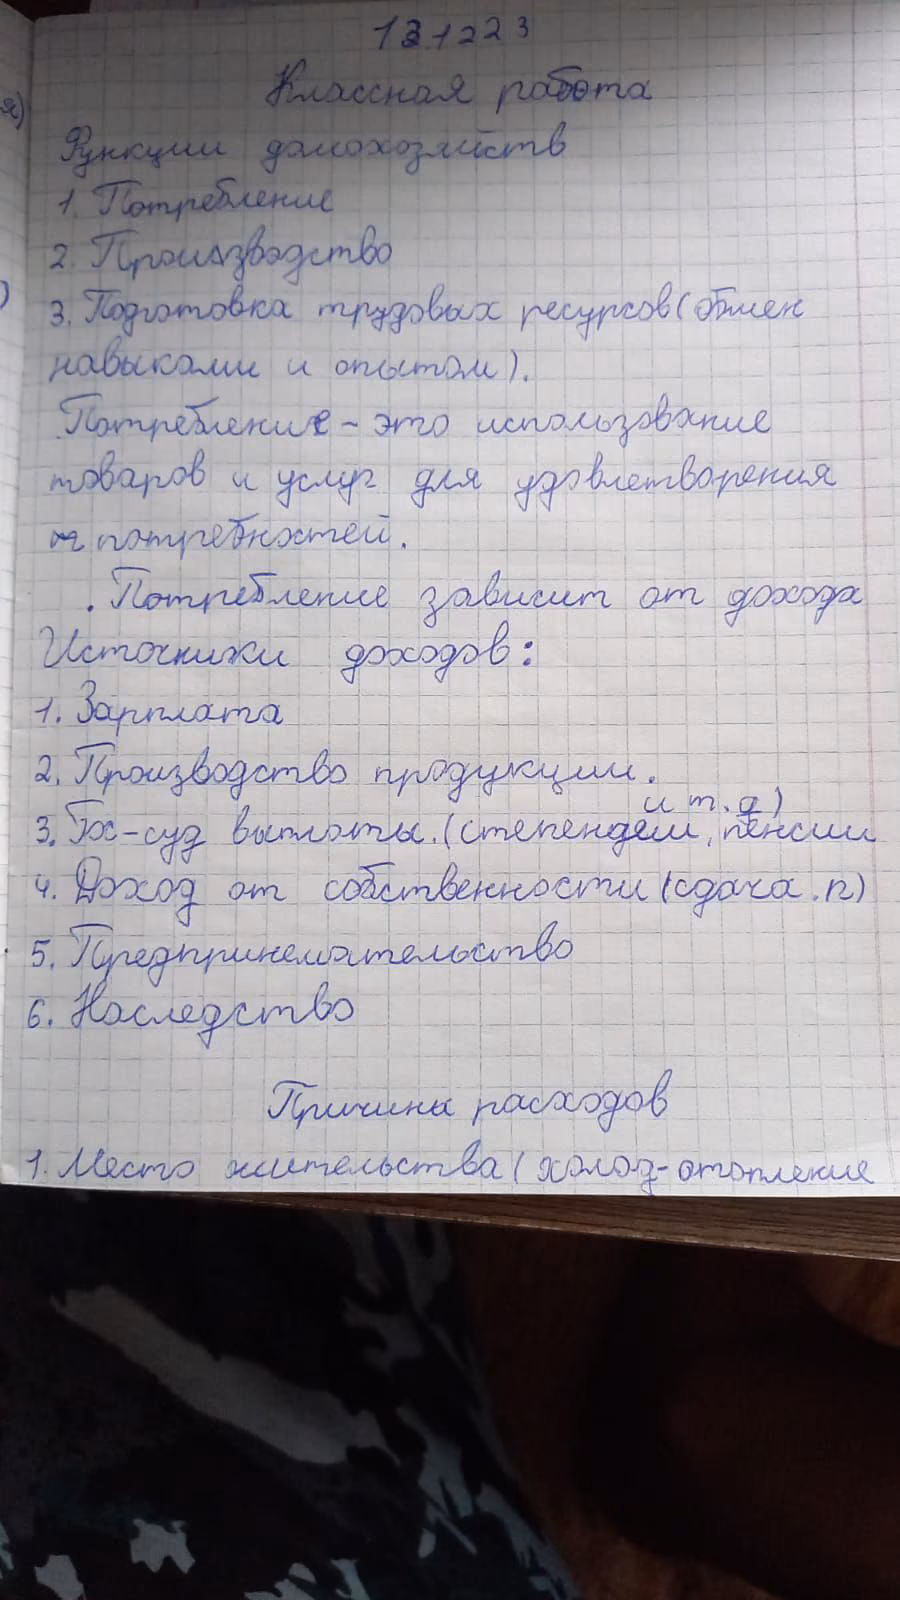 13.12.23
Классная работа
Функции домохозяйств
1. Потребление
2. Производство
3. Подготовка трудовых ресурсов (обмен
навыками и опытом).
Потребление - это использование
товаров и услуг для удовлетворения
потребностей.
. Потребление зависит от дохода
Источники доходов:
1. Зарплата
2. Производство продукции.
и т. д)
3. Гос-суд выплаты. (степендеи, пенсии
4. Доход от собственности (сдача .п)
5. Предпринемательство
6. Наследство
Причины расходов
1. Место жительства (холод-отопление